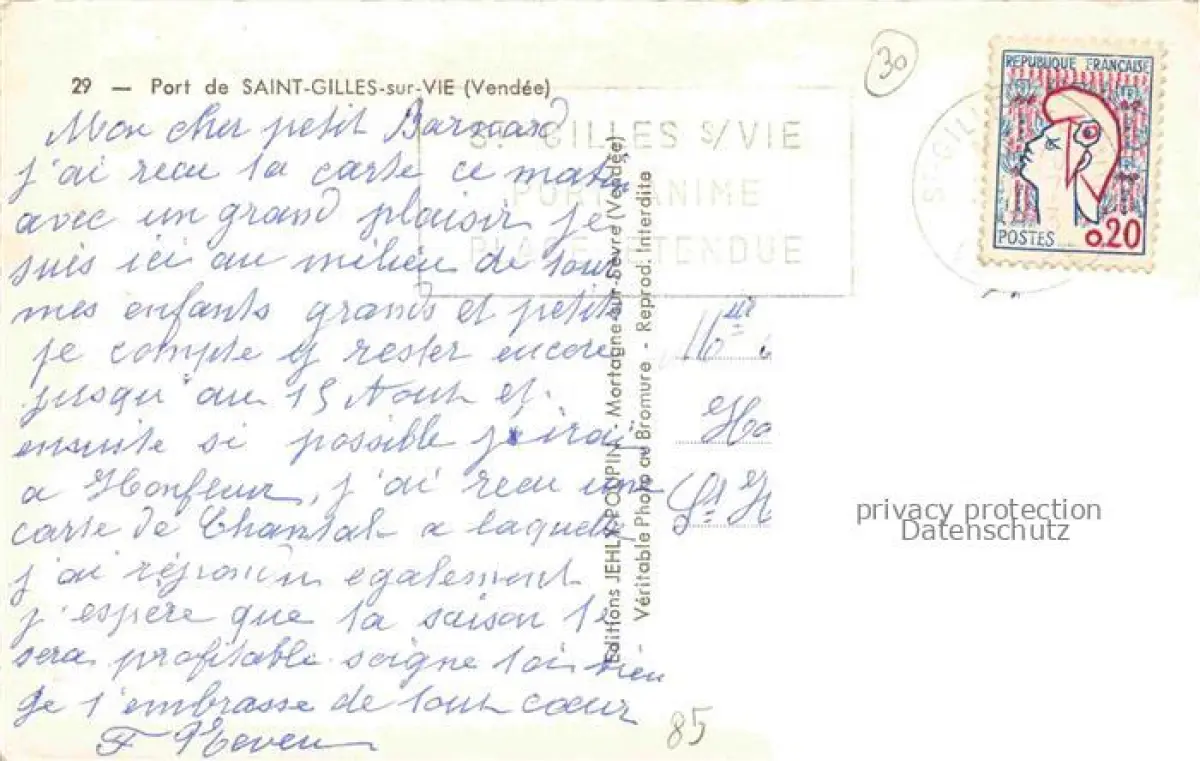 29 — Port de SAINT-GILLES-sur-VIE (Vendée)
30
REPUBLIQUE FRANÇAISE
POSTES 0.20
ST GILLES S/VIE
PORT ANIME
PLAGE ETENDUE
ST-GILL
Mon cher petit Barnard
j'ai recu ta carte ce matin
avec un grand plaisir je
suis ici au milieu de tous
mes enfants grands et petits
je compte y rester encore
jusqu'au 15 Aout et
ensuite si possible j'irai
a Honfleur, j'ai recu une
carte de Chantal a laquelle
j'ai répondu également
j'espère que ta saison te
sera profitable soigne toi bien
Je t'embrasse de tout coeur
Editions JEHLY-POUPIN - Mortagne-sur-Sèvre (Vendée)
Véritable Photo au Bromure - Reprod. Interdite
Mr
Ho
St H
privacy protection
Datenschutz
85